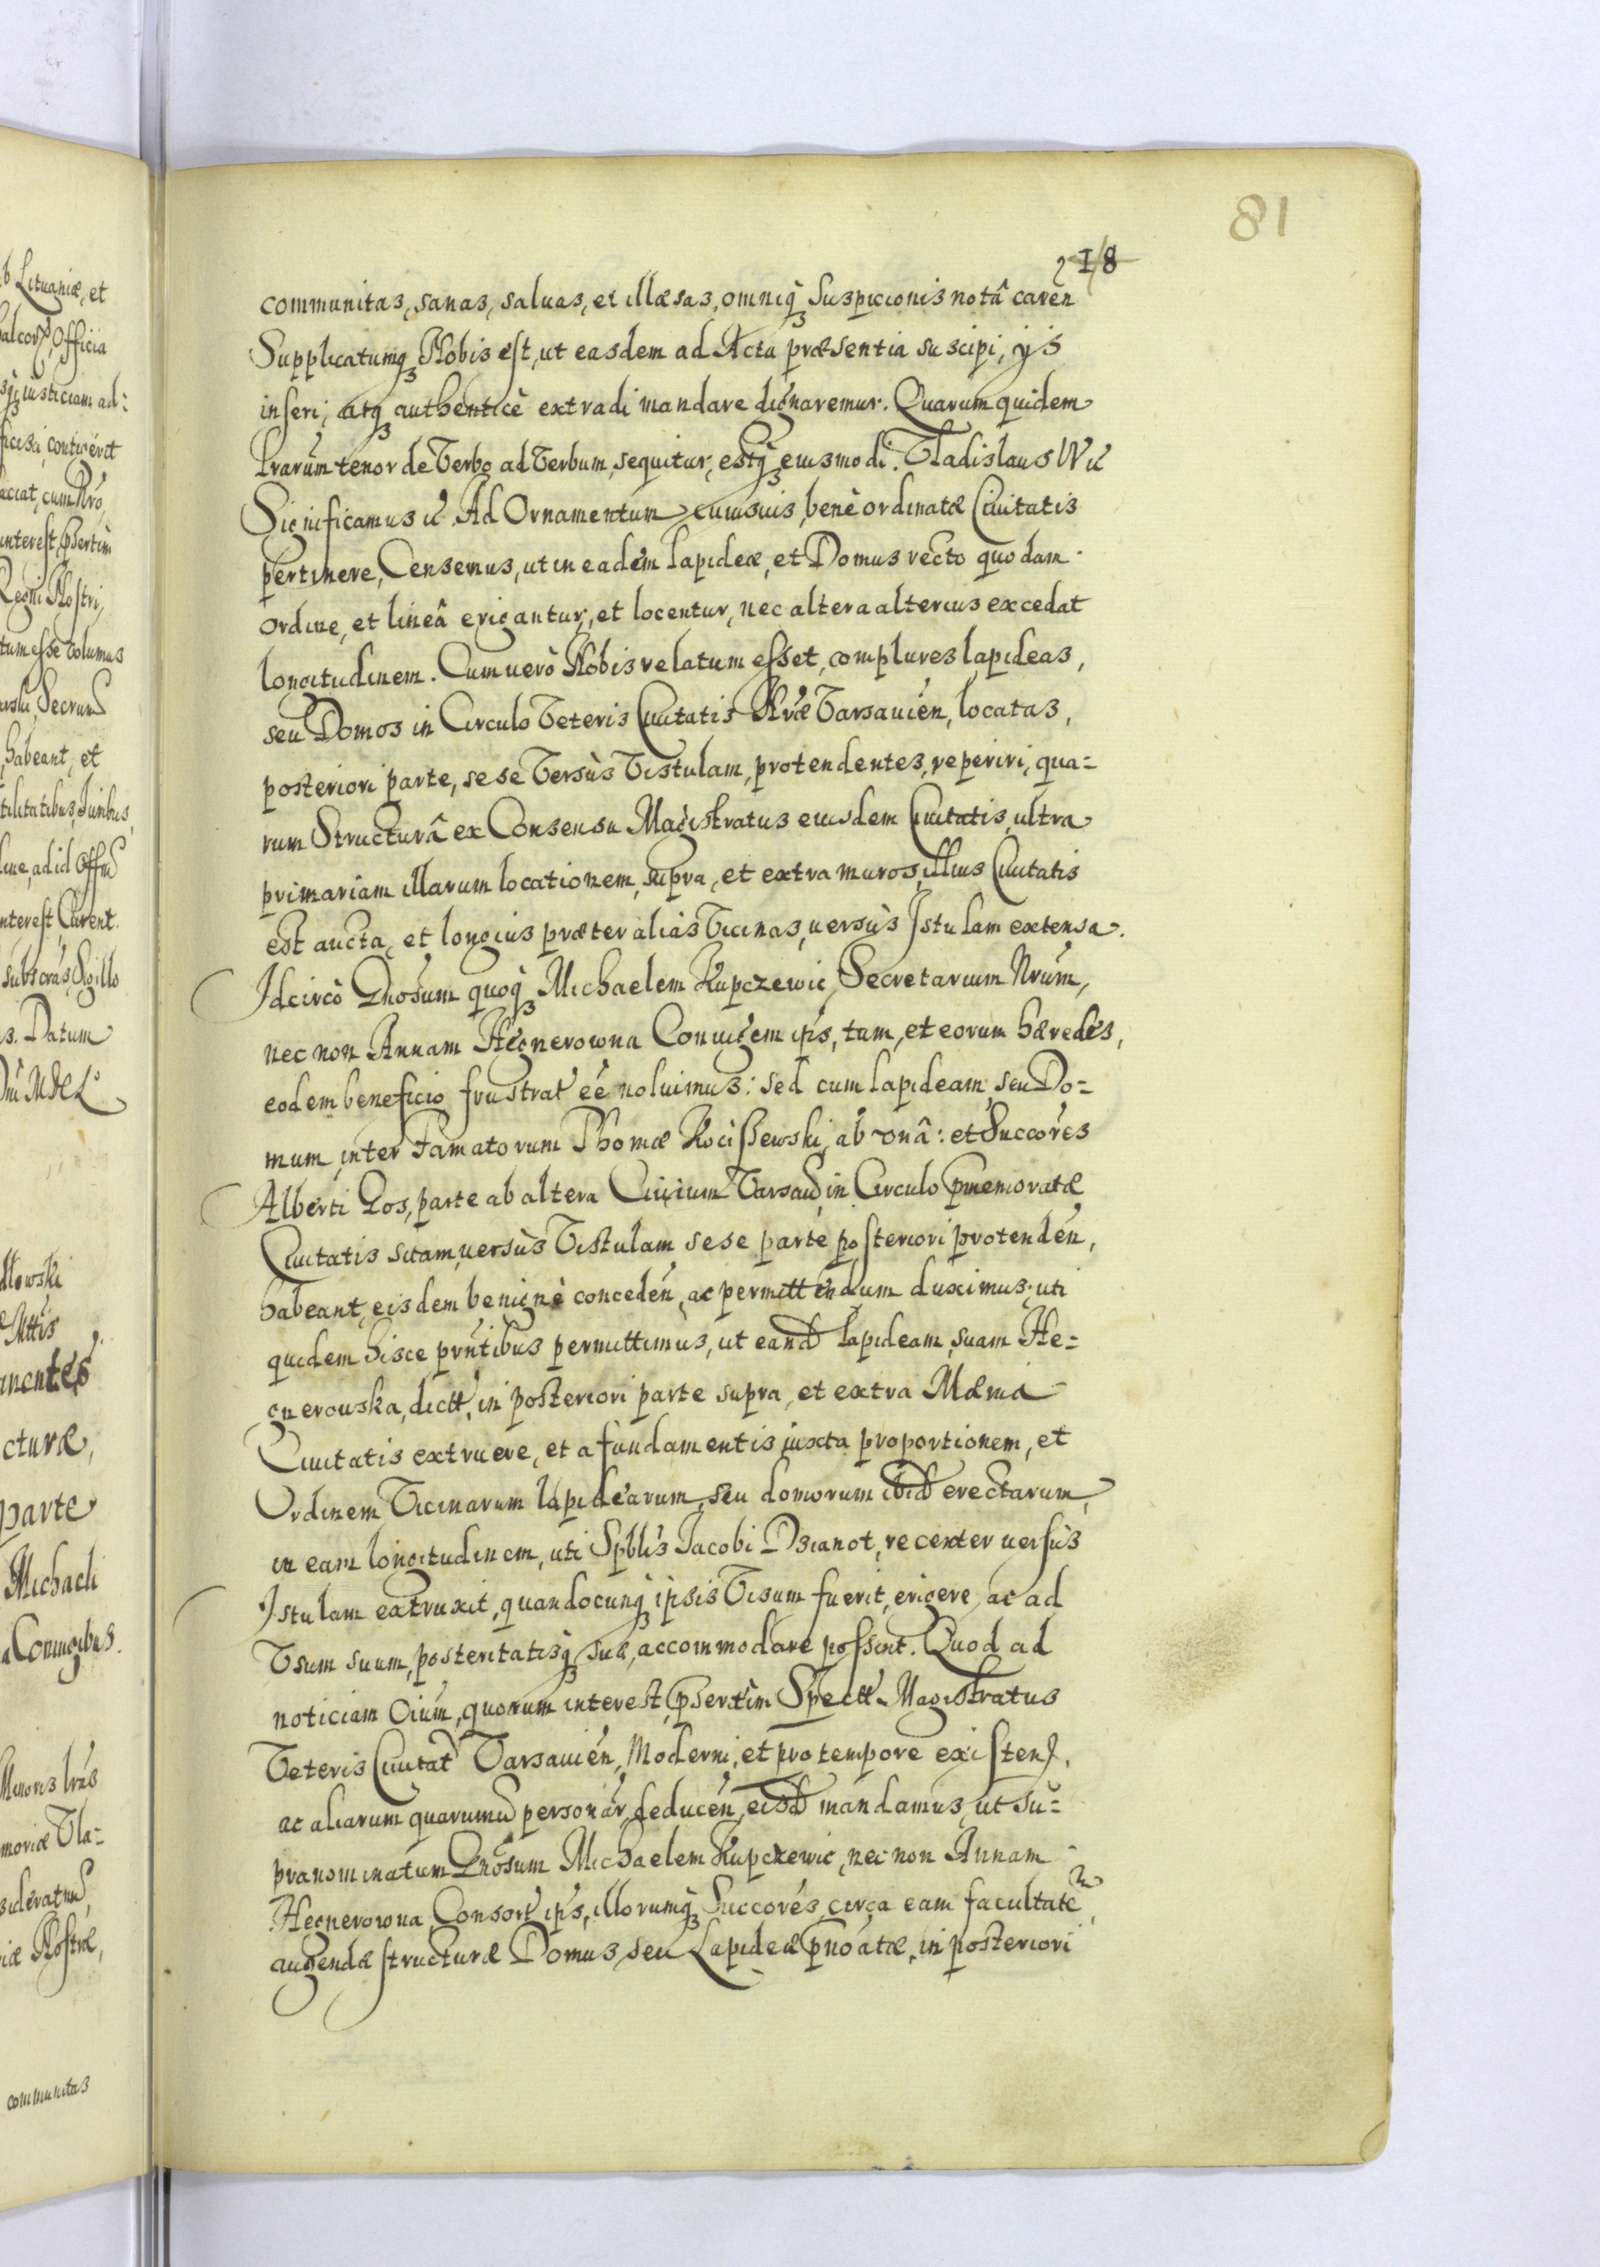 81
218
communitas, sanas, saluas, et illæsas, omniq̃ Suspicionis notâ caren
Supplicatumq̃ Nobis est, ut easdem ad Acta præsentia suscipi, ijs
inseri, atq̃ authenticè extradi mandare dignaremur. Quarum quidem
Lrarum tenor de Verbo ad Verbum, sequitur, estq̃ eiusmodi. Vladislaus IV
Significamus Ad Ornamentum cuiusuis, benè ordinatæ Ciuitatis
pertinere, Censemus, ut in eadem lapideæ, et Domus recto quodam
ordine, et lineâ erigantur, et locentur, nec altera alterius excedat
longitudinem. Cum uerò Nobis relatum esset, complures lapideas,
seu Domos in Circulo Veteris Ciuitatis Nræ Varsauien, locatas,
posteriori parte, sese Versùs Vistulam, protendentes, reperiri, qua=
rum Structurâ ex Consensu Magistratus eiusdem Ciuitatis, ultra
primariam illarum locationem, supra, et extra muros, illius Ciuitatis
est aucta, et longius præter alias Vicinas, uersùs Istulam extensa.
Idcircò Gnosum quoq̃ Michaelem Kupczewic, Secretarium Nrum,
nec non Annam Hegnerowna Coniugem ips, tum, et eorum hæredes,
eodem beneficio frustrat eé noluimus: sed cum lapideam, seu Do=
mum, inter Famatorum Thomæ Kocissewski, ab vnâ: et Succores
Alberti Gos, parte ab altera Ciuium Varsau, in Circulo pmemoratæ
Ciuitatis sitam, uersùs Vistulam sese parte posteriori protenden,
habeant, eisdem benignè conceden, ac permittendum duximus, uti
quidem hisce pntibus permittimus, ut eand lapideam, suam He=
gnerouska, dictt, in posteriori parte supra, et extra Mænia
Ciuitatis extruere, et a fundamentis iuxta proportionem, et
Ordinem Vicinarum lapidearum, seu domorum ibid erectarum,
in eam longitudinem, uti Spblis Jacobi Dzianot, recenter uersùs
Istulam extruxit, quandocunq̃ ipsis Visum fuerit, erigere, ac ad
Vsum suum, posteritatisq̃ suæ, accommodare possint. Quod ad
noticiam oium, quorum interest, psertim Spectt. Magistratus
Veteris Ciuitat Varsauien, Moderni, et pro tempore existen,
ac aliarum quarumu personar, deducen, eisd mandamus, ut su=
pranominatum Gnosum Michaelem Kupczewic, nec non Annam
Hegnerowna Consort ips, illorumq̃ Succores, circa eam facultate m
augendæ structuræ Domus, seu Lapideæ pnoatæ, in posteriori
b Lituaniæ, et
Officia
iusticiam ad=
interest, psertim
Regni Nostri,
tum esse Volumus
habeant, et
Iuribus,
nterest Curent.
Sigillo
s. Datum
parte
Michaeli
a Coniugibus.
Minoris lras
moriæ Vla=
iæ Nostræ,
communitas